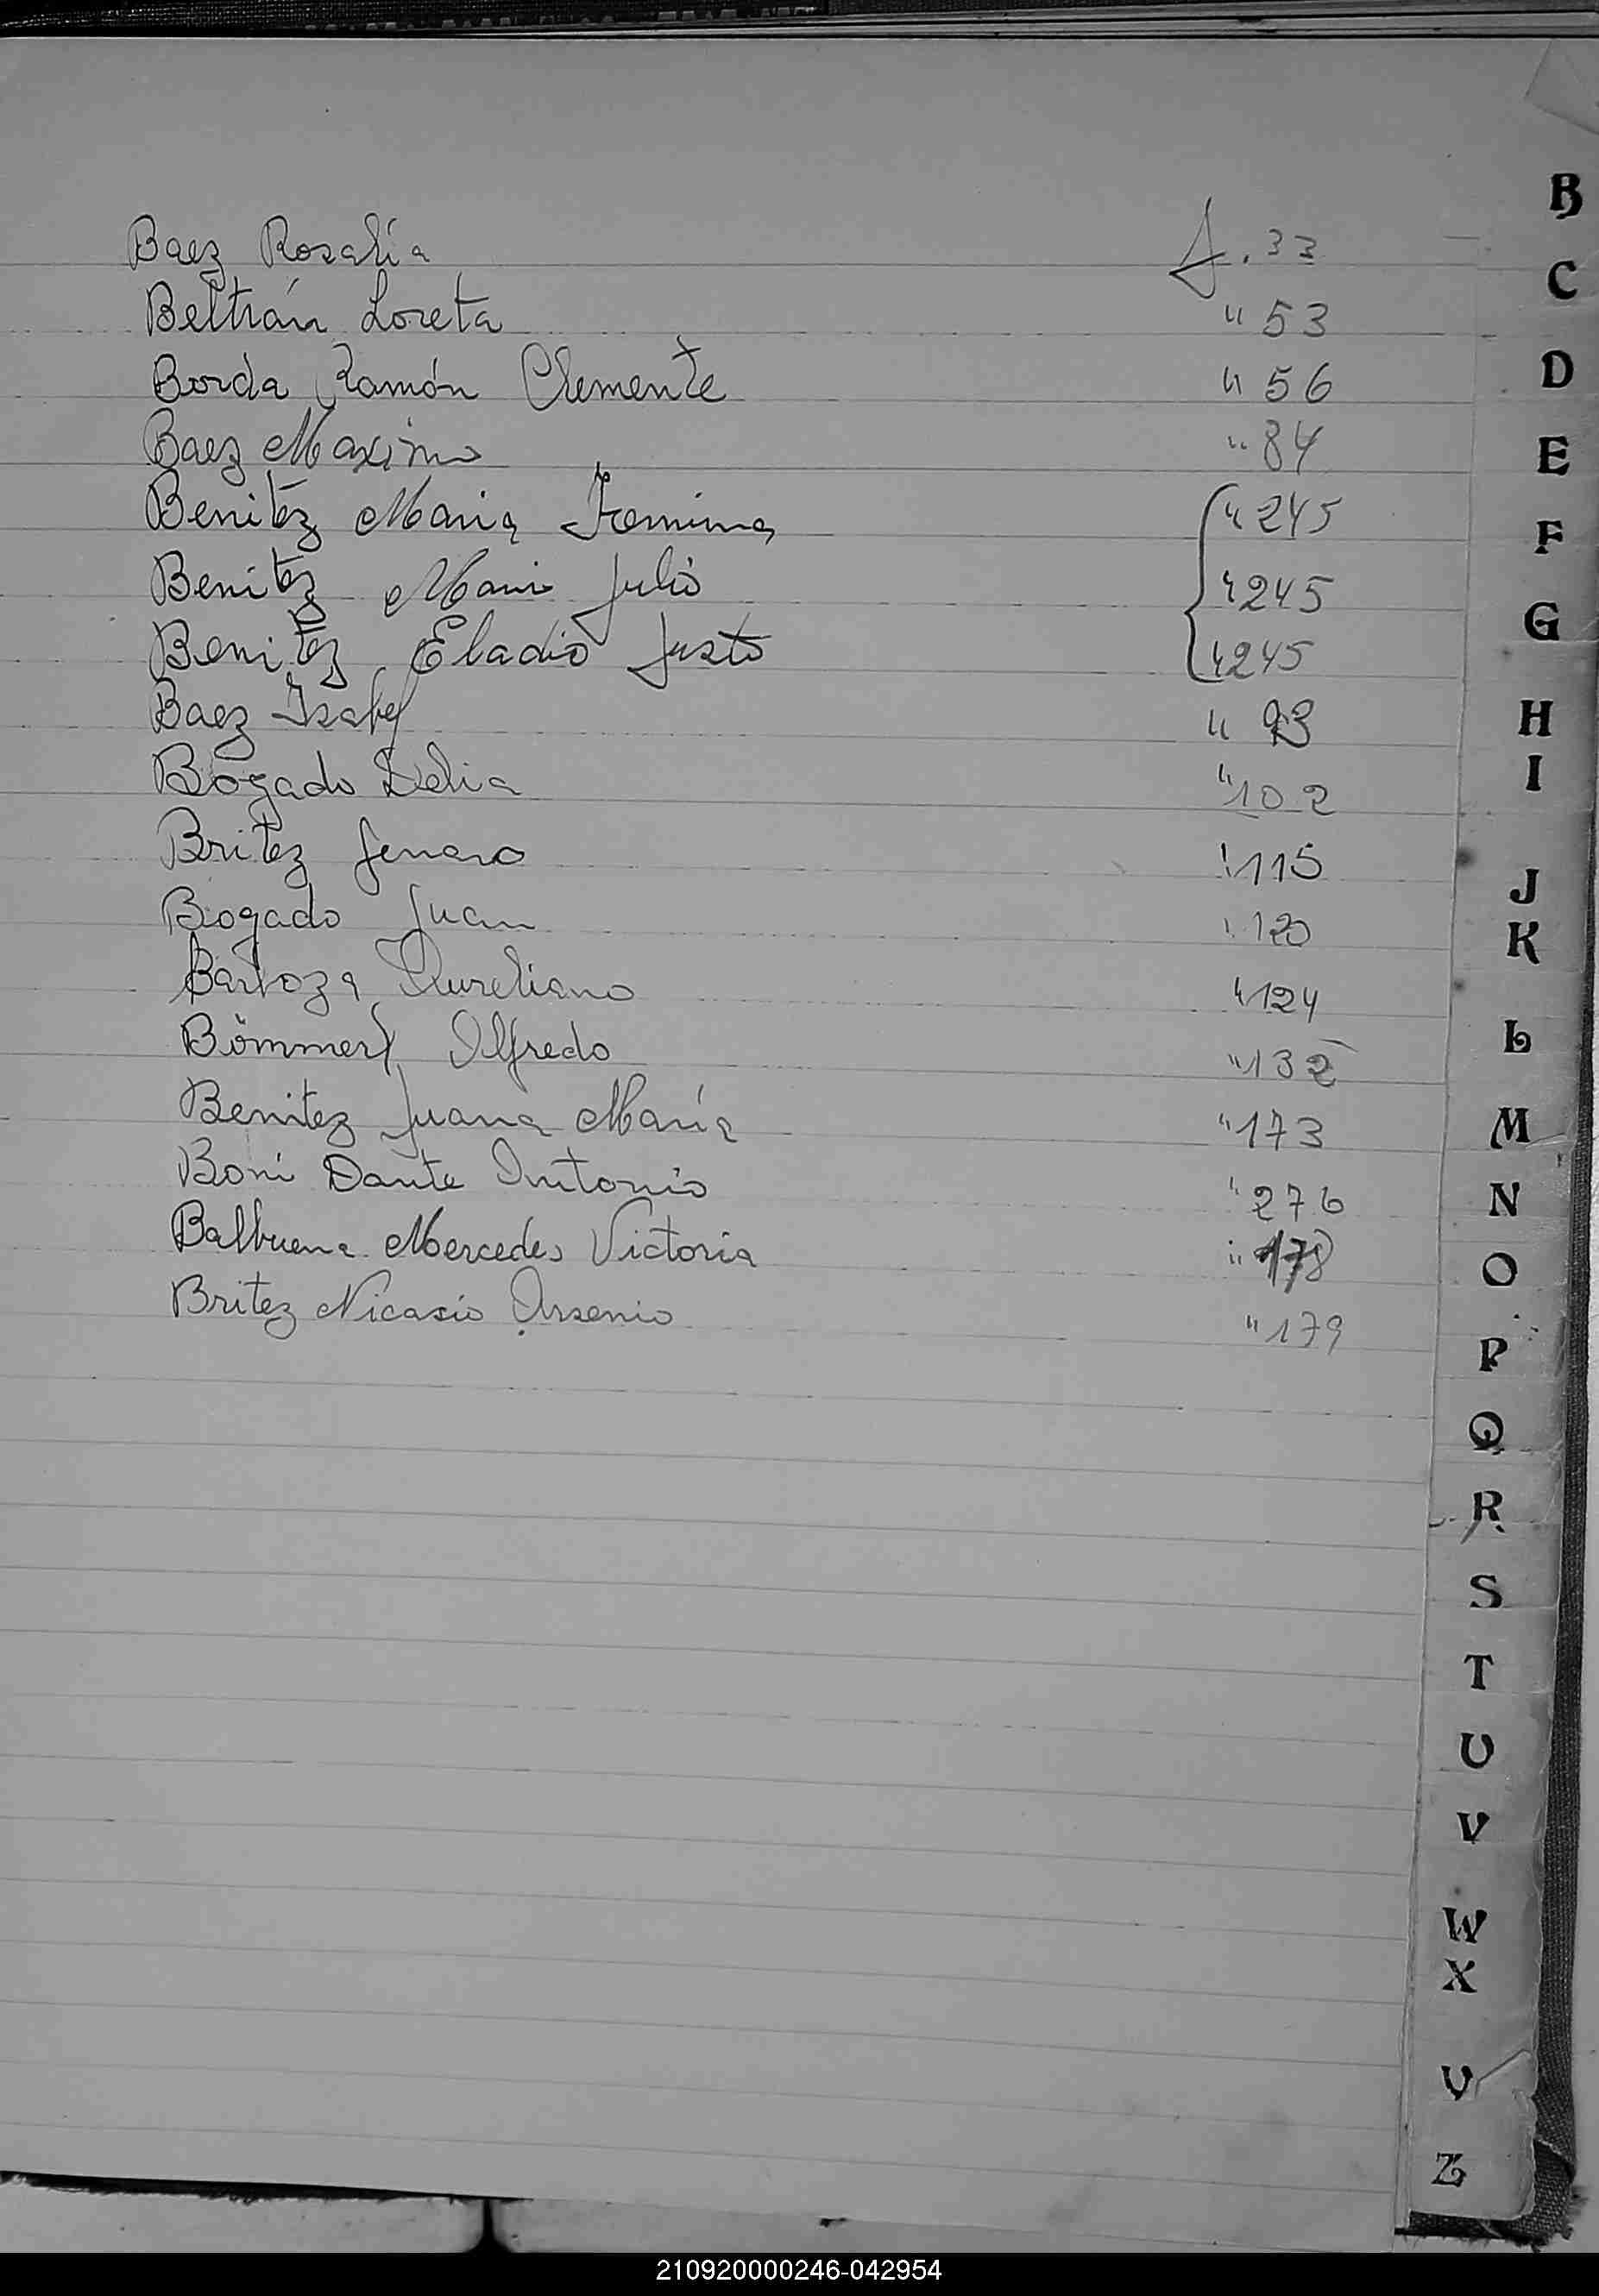 B
Baez Rosalia f. 33
C
Beltrán Loreta " 53
D
Borda Ramón Clemente " 56
Baez Maximo " 84
E
Benitez Maria " 245
F
Benitez Julio " 245
G
Benitez Eladio Justo " 245
Baez Isabel " 93
H
Bogado Delia " 102
I
Britez Genaro " 115
J
Bogado Juan " 120
K
Barboza Aureliano " 124
Bömmerl Alfredo " 132
L
Benitez Juana María " 173
M
Boni Dante Antonio " 276
N
Balbuena Mercedes Victoria " 178
O
Britez Nicasio Arsenio " 179
P
Q
R
S
T
U
V
W
X
Y
Z
210920000246-042954